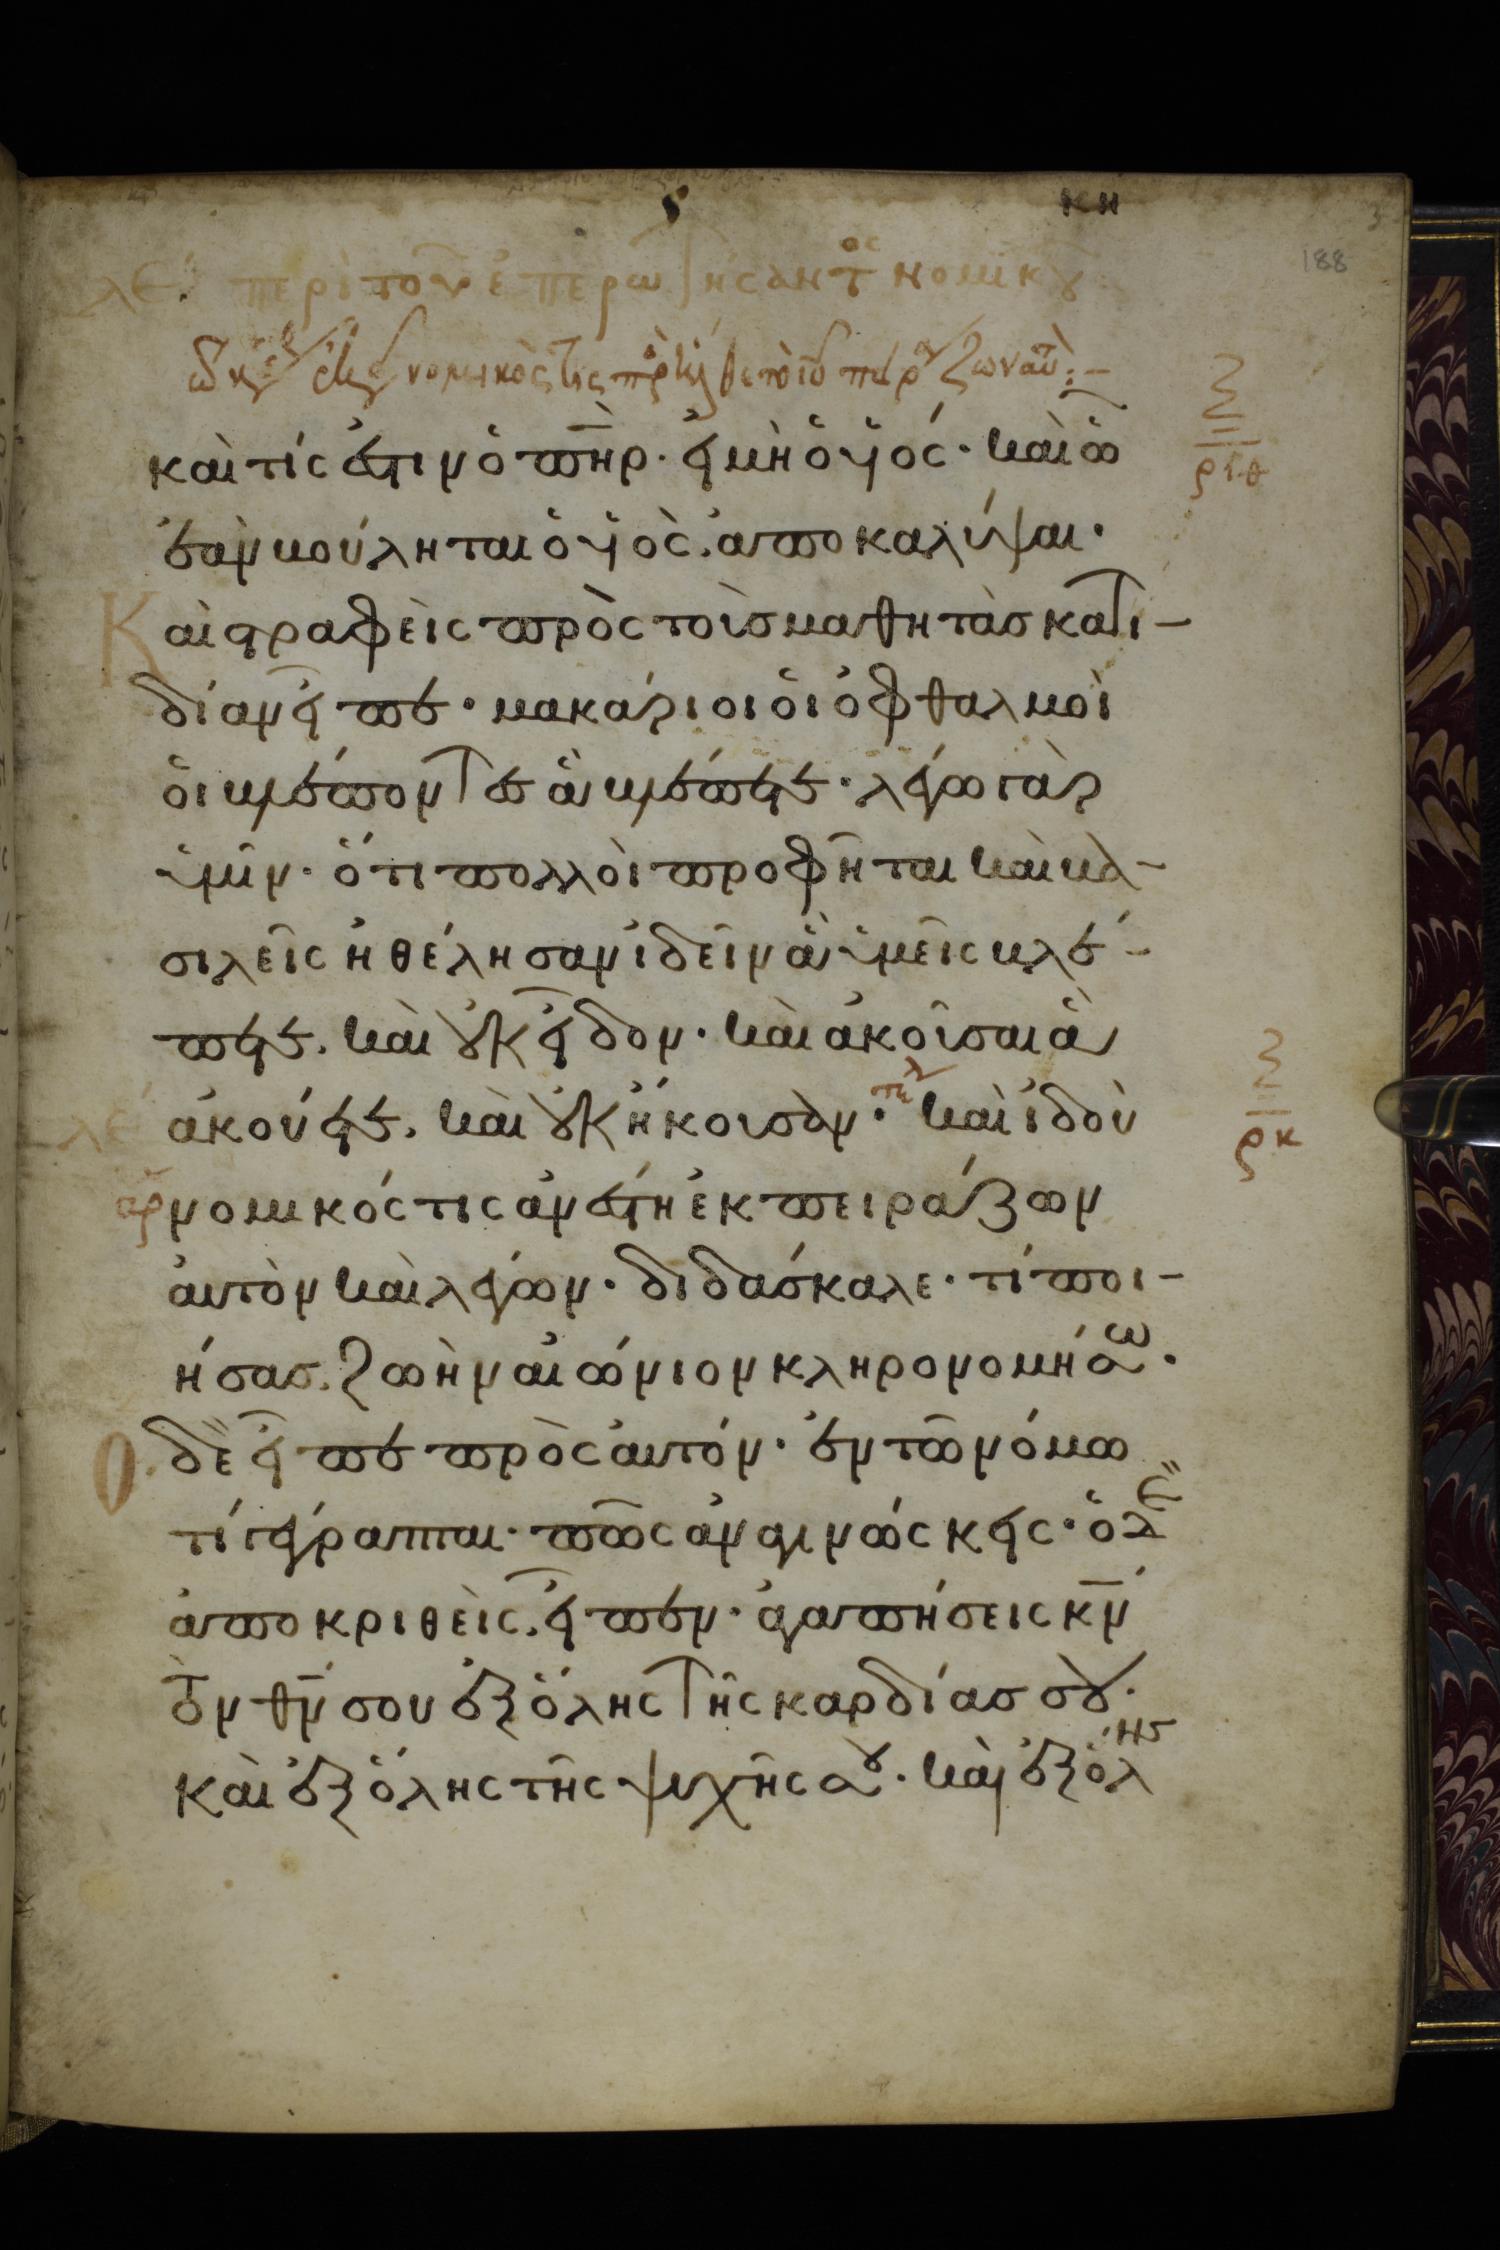 κη
188
λε. περὶ τοῦ ἐπερωτήσαντος νομικοῦ
νομικός τις
καὶ τίς ἐστιν ὁ πηρ. εἰ μὴ ὁ υἱός· καὶ ὧ
ἐὰν βούληται ὁ υἱὸς. ἀποκαλύψαι·
Καὶ στραφεὶς πρὸς τοὺσ μαθητὰσ κατι-
δίαν εἶπε· μακάριοι οἱ ὀφθαλμοὶ
οἱ βλέποντεσ ἃ βλέπετε· λέγω γὰρ
ὑμῖν· ὅτι πολλοὶ προφῆται καὶ βα-
σιλεῖς ἠθέλησαν ἰδεῖν ἃ ὑμεῖς βλέ-
πετε. καὶ οὐκ εἶδον· καὶ ἀκοῦσαι ἃ
λε ἀκούετε. καὶ οὐκ ἤκουσαν· τελ καὶ ἰδοὺ
αρ νομικός τις ἀνέστη ἐκπειράζων
αὐτὸν καὶ λέγων· διδάσκαλε· τί ποι-
ήσασ. ζωὴν αἰώνιον κληρονομήσω·
Ὁ δὲ εἶπε πρὸς αὐτόν· ἐν τῶ νόμω
τί γέγραπται· πῶς ἀναγινώσκεις· ὁ δὲ
ἀποκριθεὶς. εἶπεν· ἀγαπήσεις κν
τὸν θν σου ἐξ ὅλης τῆς καρδίασ σοὺ·
καὶ ἐξ ὅλης τῆς ψυχῆς σου· καὶ ἐξ ὅλης
ριθ
ρκ